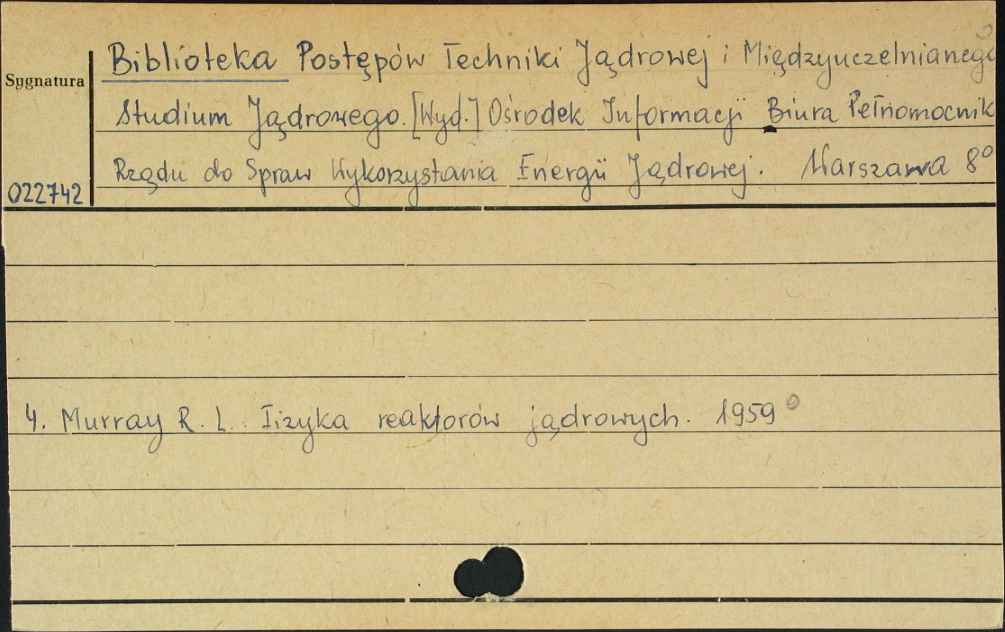 Biblioteka Postępów Techniki Jądrowej i Międzyuczelnianego
Sygnatura
Studium Jądrowego. [Wyd.] Ośrodek Informacji Biura Pełnomocnik
Rządu do Spraw Wykorzystania Energii Jądrowej. Warszawa 8°
022742
4. Murray R. L. Fizyka reaktorów jądrowych. 1959